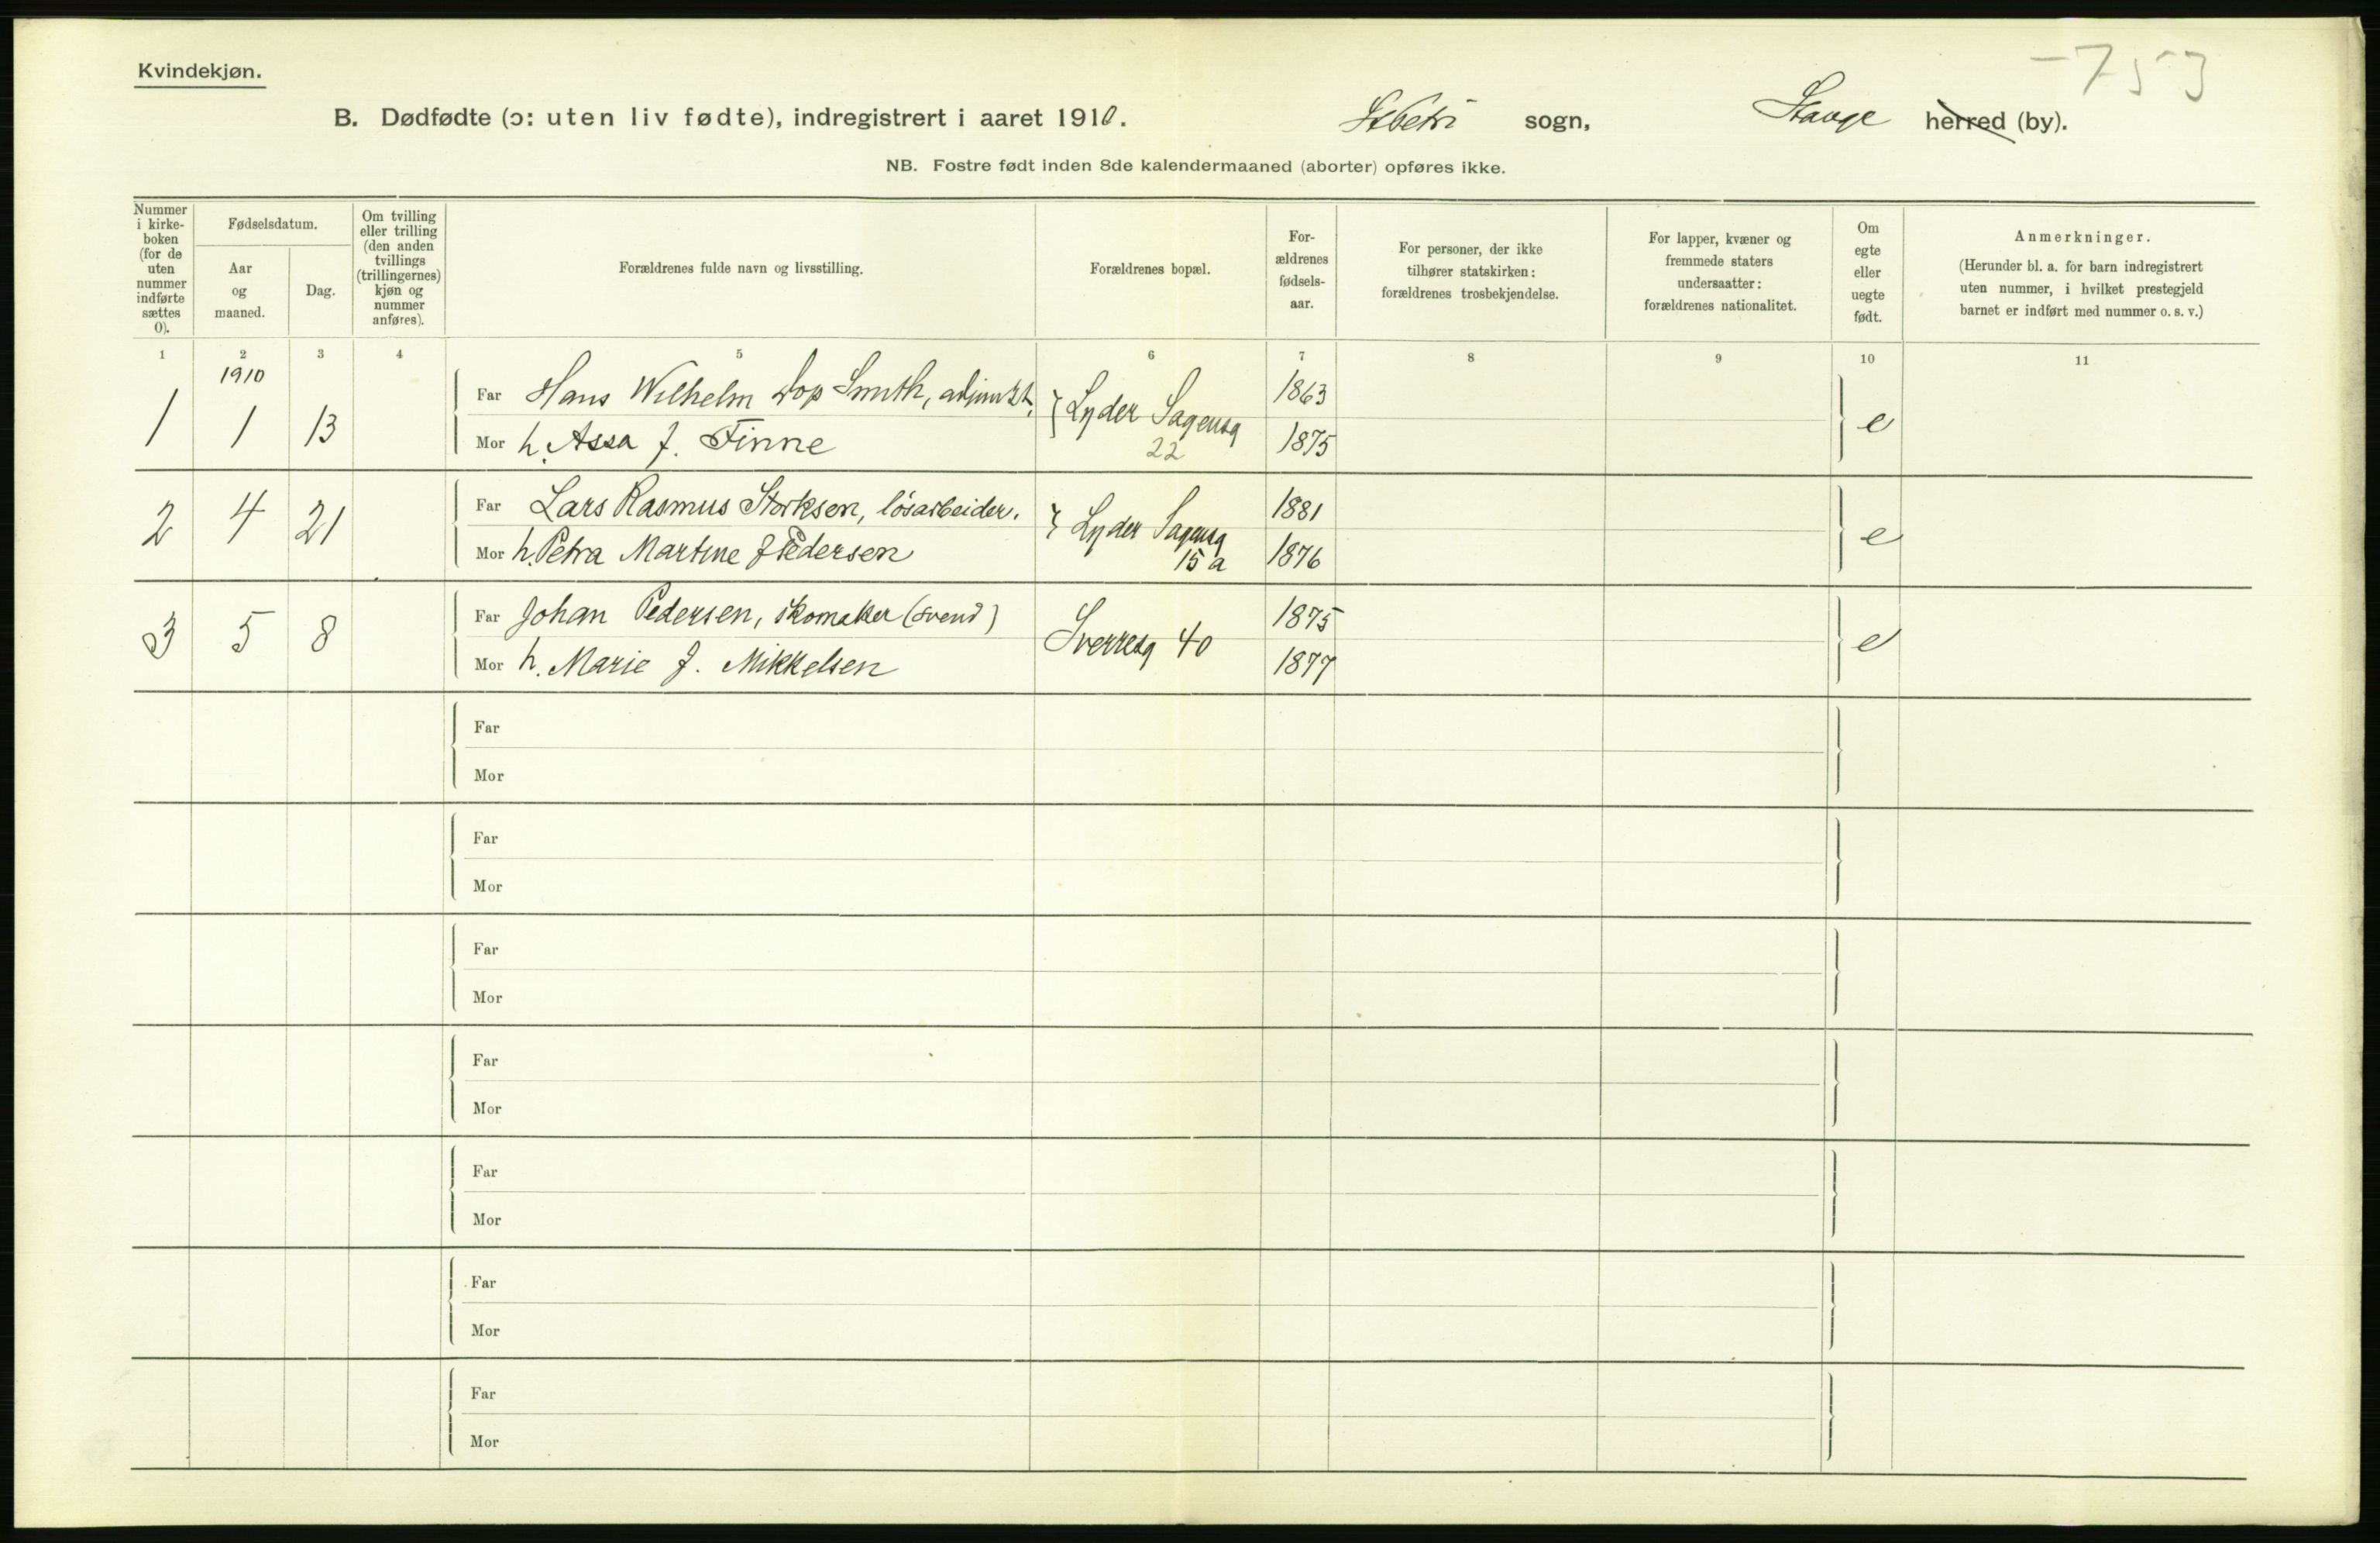 -753
Kvindekjøn.
B. Dødfødte (ɔ: uten liv fødte), indregistrert i aaret 1910. St Petri sogn, herred (by).
NB. Fostre født inden 8de kalendermaaned (aborter) opføres ikke.
Nummer
i kirke-
boken
(for de
uten
nummer
indførte
sættes
0).
Fødselsdatum.
Aar
og
maaned.
Dag.
Om tvilling
eller trilling
(den anden
tvillings
(trillingernes)
kjøn og
nummer
anføres).
Forældrenes fulde navn og livsstilling.
Forældrenes bopæl.
For-
ældrenes
fødsels-
aar.
For personer, der ikke
tilhører statskirken:
forældrenes trosbekjendelse.
For lapper, kvæner og
fremmede staters
undersaatter:
forældrenes nationalitet.
Om
egte
eller
uegte
født.
Anmerkninger.
(Herunder bl. a. for barn indregistrert
uten nummer, i hvilket prestegjeld
barnet er indført med nummer o. s. v.)
1 2 3 4 5 6 7 8 9 10 11
1910
1 1 13
Far Hans Wilhelm Dop Smith, adjunkt. Lyder Sagensg 1863
Mor h. Assa f. Finne 22 1875 e
2 4 21
Far Lars Rasmus Storksen, lösarbeider. Lyder Sagensg 1881
Mor h. Petra Martine f Pedersen 15 a 1876 e
3 5 8
Far Johan Pedersen, skomaker (svend) Sverresg 40 1875
Mor h. Marie f. Mikkelsen 1877 e
Far
Mor
Far
Mor
Far
Mor
Far
Mor
Far
Mor
Far
Mor
Far
Mor